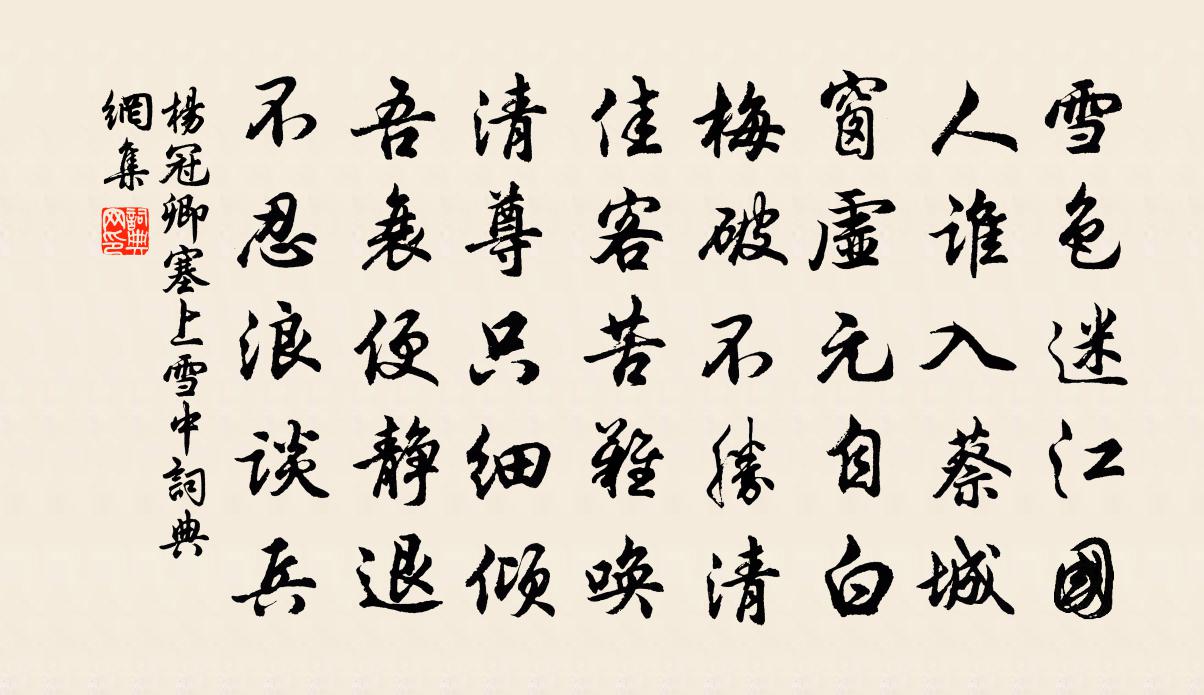 雪色迷江國
人谁入蔡城
窗虛元自白
梅破不勝清
佳客苦難唤
清尊只细倾
吾衰便静退
不忍浪谈兵
楊冠卿塞上雪中詞典
網集
詞典网印